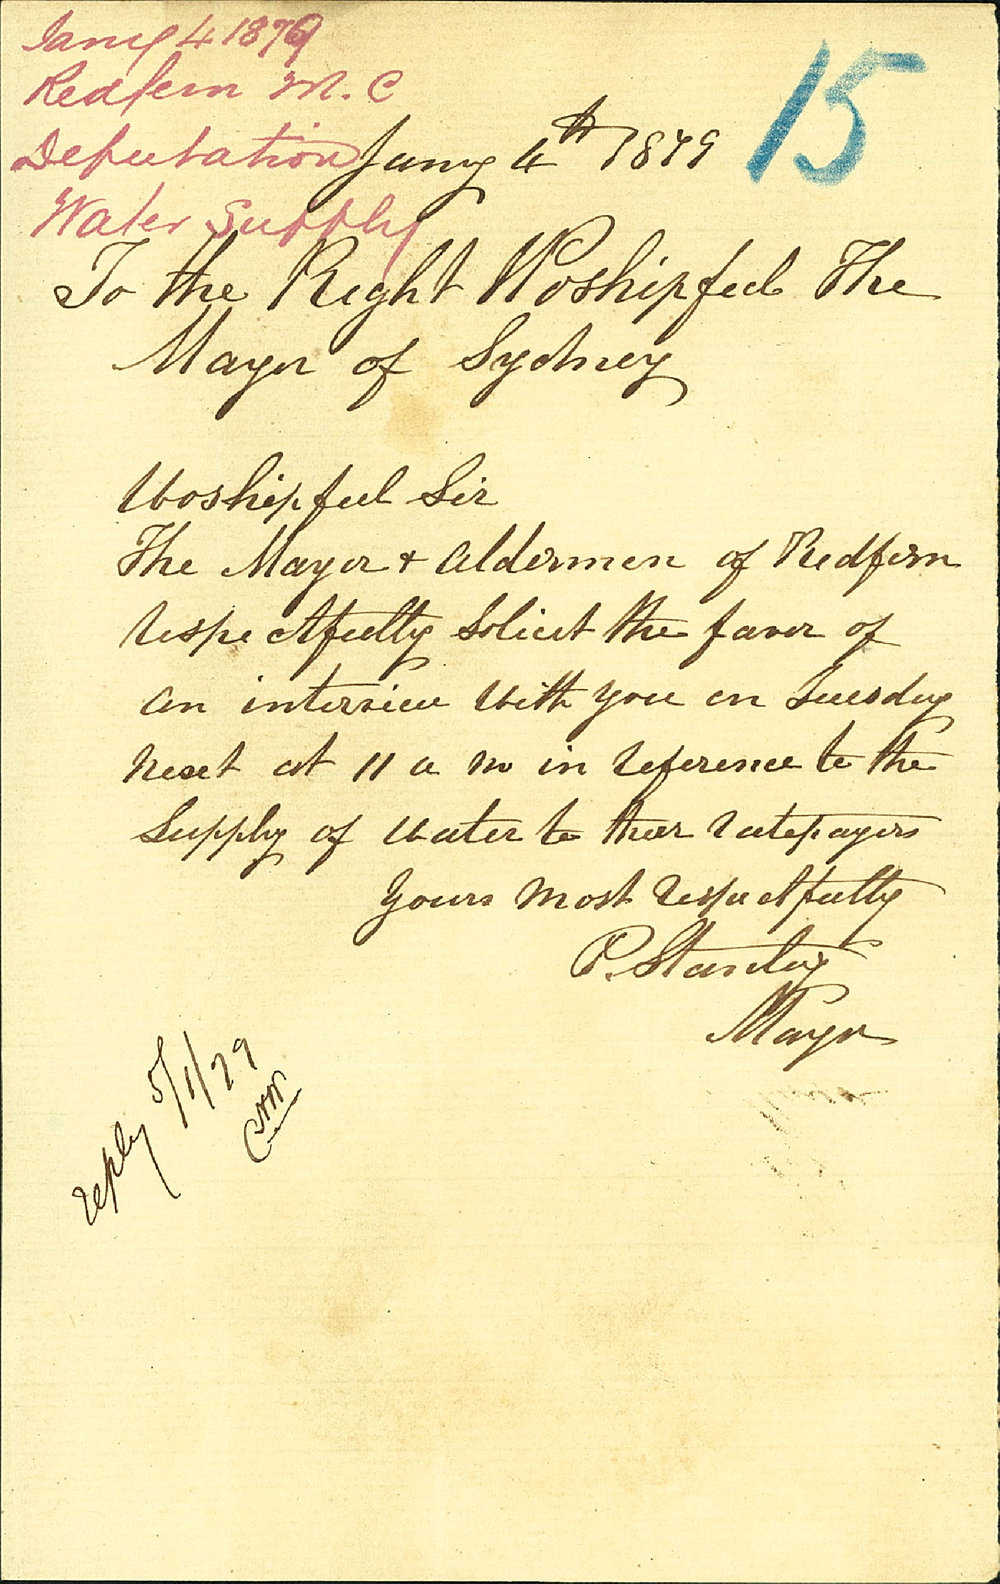 Jany 4 1879
Redfern M.C
Deputation
Water Supply
15
Jany 4th 1879
To the Right Woshipful The
Mayor of Sydney
Woshipful Sir
The Mayor + Aldermen of Redfern
respectfully Solicit the favor of
an interview with you on Tuesday
next at 11 a m in reference to the
Supply of water to their ratepayers
Yours most respectfully
P. Stanley
Mayor
reply 5/1/79